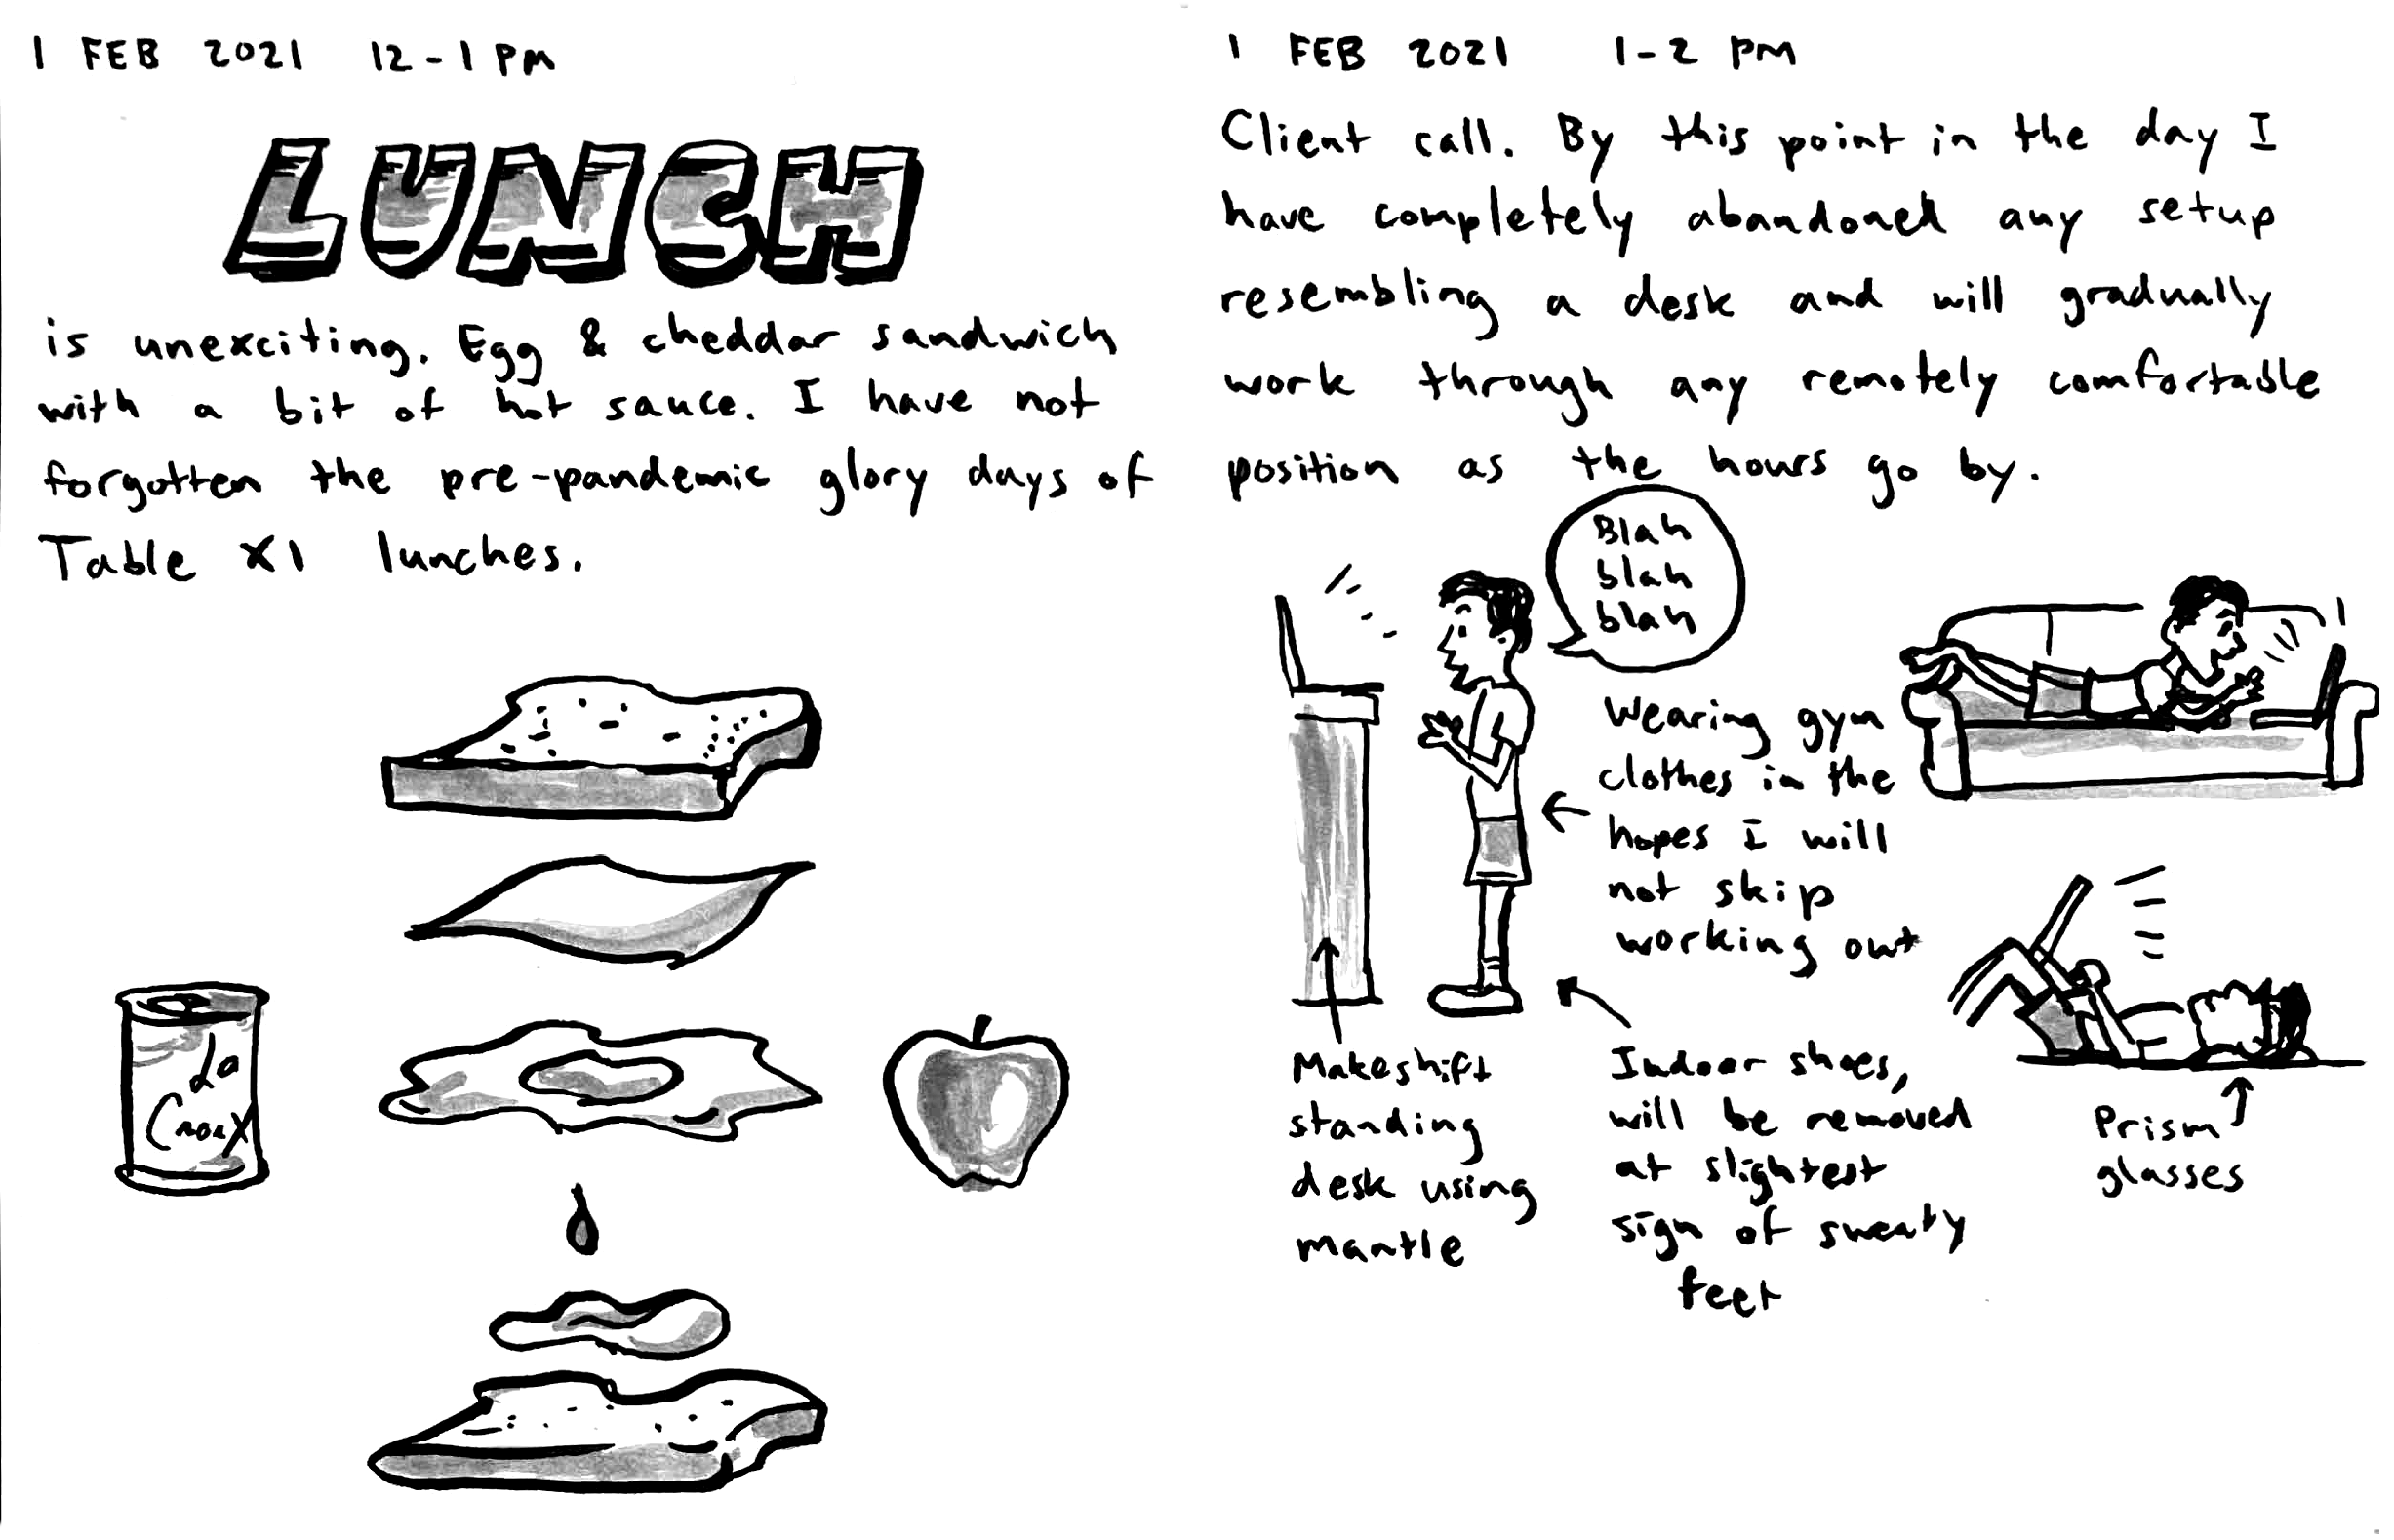 1 FEB 2021 12-1 PM
LUNCH
is unexciting. Egg & cheddar sandwich
with a bit of hot sauce. I have not
forgotten the pre-pandemic glory days of
Table XI lunches.
La
Croix
1 FEB 2021 1-2 PM
Client call. By this point in the day I
have completely abandoned any setup
resembling a desk and will gradually
work through any remotely comfortable
position as the hours go by.
Blah
blah
blah
Wearing gym
clothes in the
hopes I will
not skip
working out
Makeshift
standing
desk using
mantle
Indoor shoes,
will be removed
at slightest
sign of sweaty
feet
Prism
glasses